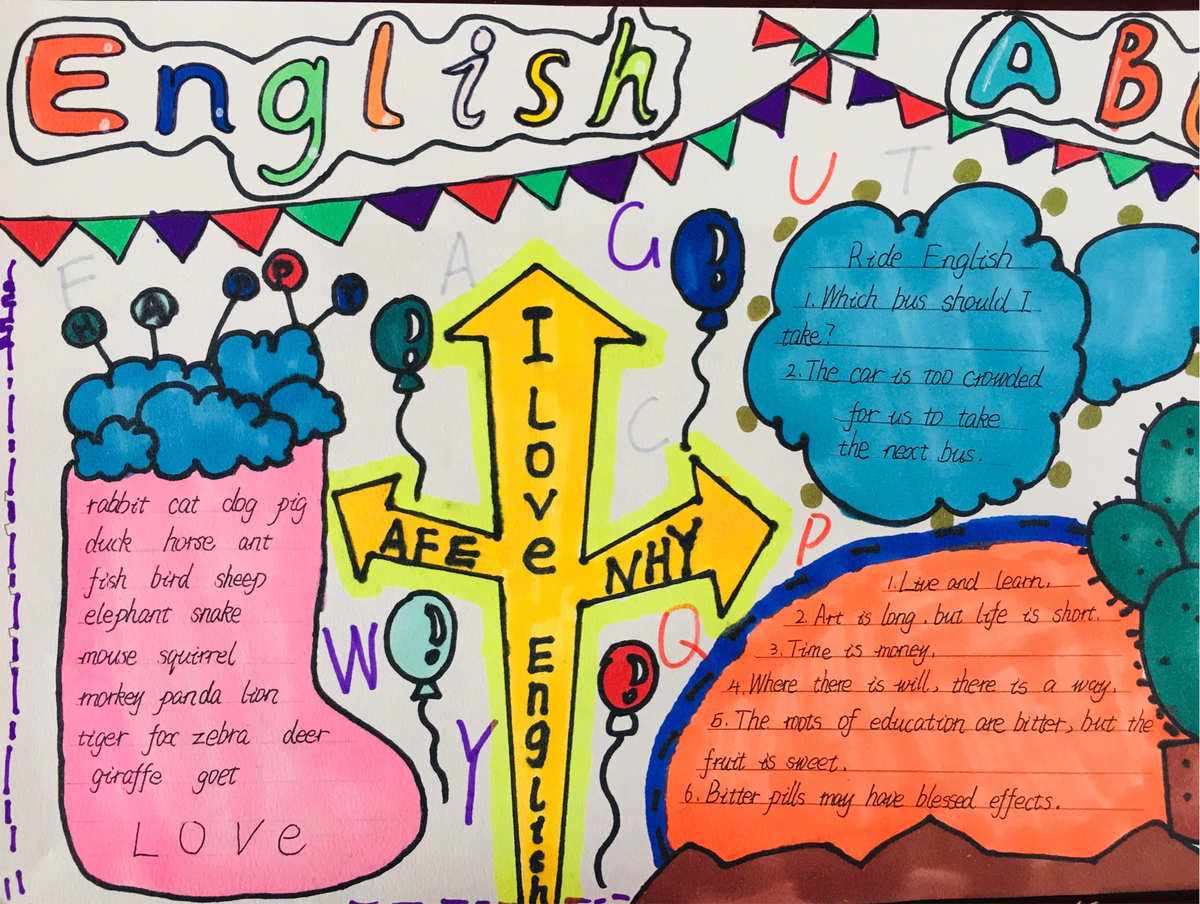 English
AB
U
T
G
A
F
C
Ride English
1. Which bus should I
take?
2. The car is too crowded
for us to take
the next bus.
I Love English
AFE
NHY
rabbit cat dog pig
duck horse ant
fish bird sheep
elephant snake
mouse squirrel
monkey panda lion
tiger fox zebra deer
giraffe goet
LOVe
P
W
Q
Y
1. Live and learn.
2. Art is long, but life is short.
3. Time is money.
4. Where there is will, there is a way.
5. The roots of education are bitter, but the
fruit is sweet.
6. Bitter pills may have blessed effects.